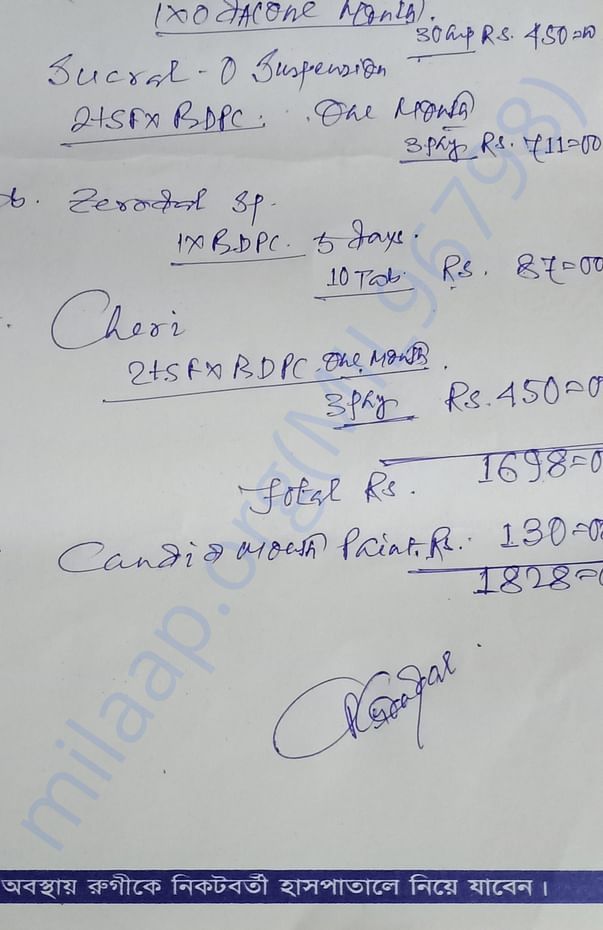 1XOD AC One Month.
30 cap Rs. 450=00
Sucral-O Suspension
2tSFX BDPC. One Month
3 phy Rs. 711=00
Zerodol Sp.
1X BDPC. 5 days.
10 Tab. Rs. 87=00
Cheri
2tSFX BDPC. One Month.
3 phy Rs. 450=0
1698=0
Total Rs.
Candid Mouth Paint. Rs. 130=00
1828=0
milaap.org(MIL_96798)
অবস্থায় রুগীকে নিকটবর্তী হাসপাতালে নিয়ে যাবেন।